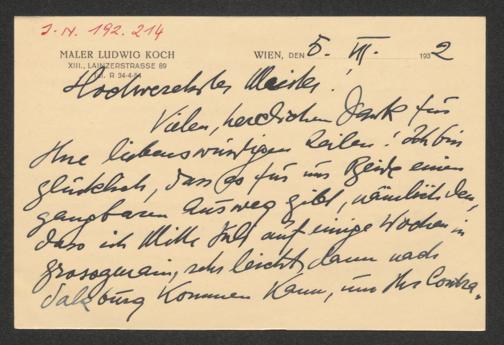 I.N. 192.214
MALER LUDWIG KOCH
XIII., LAINZERSTRASSE 89
R 34-4-54
WIEN, DEN 5. VII. 1932
Hochverehrter Meister!
Vielen, herzlichen Dank für
Ihre liebenswürdigen Zeilen! Ich bin
glücklich, dass es für uns Beide einen
gangbaren Ausweg gibt, nämlich den,
dass ich Mitte Juli auf einige Wochen in
Grossgmain, sehr leicht dann nach
Salzburg kommen kann, um Ihr Contra-